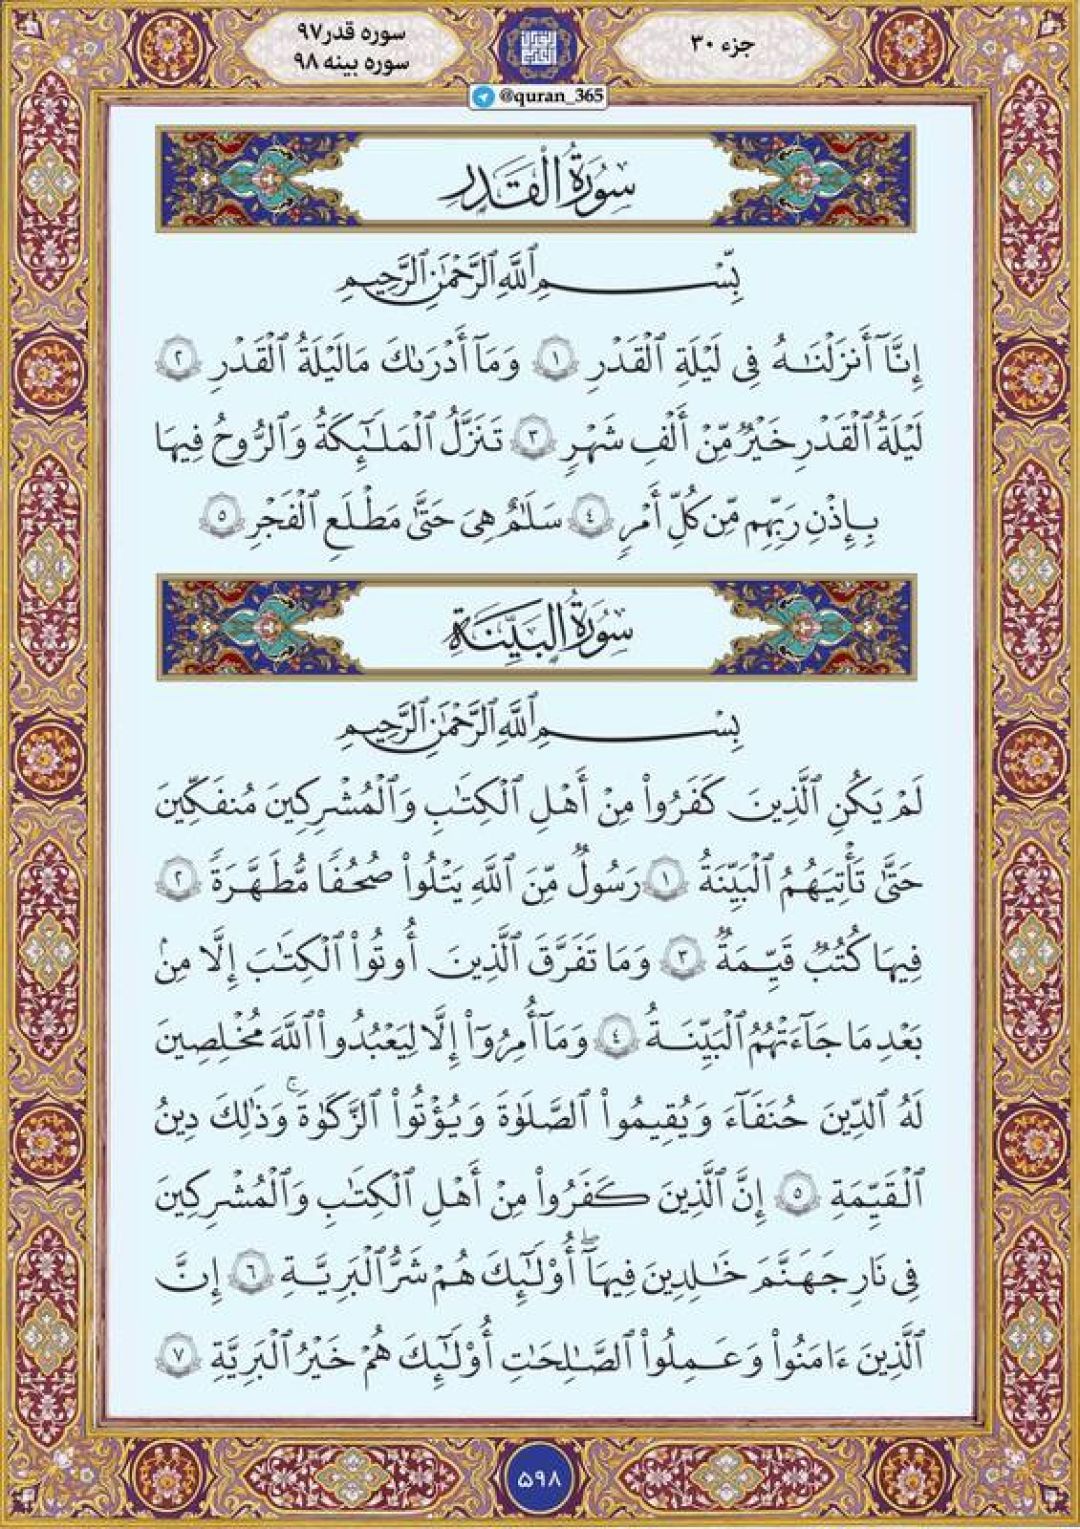 جزء ۳۰
سوره قدر۹۷
سوره بینه ۹۸
@quran_365
سُورَةُ الْقَدْرِ
بِّسْمِ ٱللَّهِ ٱلرَّحْمَٰنِ ٱلرَّحِيمِ
إِنَّآ أَنزَلْنَٰهُ فِى لَيْلَةِ ٱلْقَدْرِ ١ وَمَآ أَدْرَىٰكَ مَا لَيْلَةُ ٱلْقَدْرِ ٢
لَيْلَةُ ٱلْقَدْرِ خَيْرٌ مِّنْ أَلْفِ شَهْرٍ ٣ تَنَزَّلُ ٱلْمَلَٰٓئِكَةُ وَٱلرُّوحُ فِيهَا
بِإِذْنِ رَبِّهِم مِّن كُلِّ أَمْرٍ ٤ سَلَٰمٌ هِىَ حَتَّىٰ مَطْلَعِ ٱلْفَجْرِ ٥
سُورَةُ الْبَيِّنَةِ
بِسْمِ ٱللَّهِ ٱلرَّحْمَٰنِ ٱلرَّحِيمِ
لَمْ يَكُنِ ٱلَّذِينَ كَفَرُوا۟ مِنْ أَهْلِ ٱلْكِتَٰبِ وَٱلْمُشْرِكِينَ مُنفَكِّينَ
حَتَّىٰ تَأْتِيَهُمُ ٱلْبَيِّنَةُ ١ رَسُولٌ مِّنَ ٱللَّهِ يَتْلُوا۟ صُحُفًا مُّطَهَّرَةً ٢
فِيهَا كُتُبٌ قَيِّمَةٌ ٣ وَمَا تَفَرَّقَ ٱلَّذِينَ أُوتُوا۟ ٱلْكِتَٰبَ إِلَّا مِنۢ
بَعْدِ مَا جَآءَتْهُمُ ٱلْبَيِّنَةُ ٤ وَمَآ أُمِرُوٓا۟ إِلَّا لِيَعْبُدُوا۟ ٱللَّهَ مُخْلِصِينَ
لَهُ ٱلدِّينَ حُنَفَآءَ وَيُقِيمُوا۟ ٱلصَّلَوٰةَ وَيُؤْتُوا۟ ٱلزَّكَوٰةَ ۚ وَذَٰلِكَ دِينُ
ٱلْقَيِّمَةِ ٥ إِنَّ ٱلَّذِينَ كَفَرُوا۟ مِنْ أَهْلِ ٱلْكِتَٰبِ وَٱلْمُشْرِكِينَ
فِى نَارِ جَهَنَّمَ خَٰلِدِينَ فِيهَآ ۚ أُو۟لَٰٓئِكَ هُمْ شَرُّ ٱلْبَرِيَّةِ ٦ إِنَّ
ٱلَّذِينَ ءَامَنُوا۟ وَعَمِلُوا۟ ٱلصَّٰلِحَٰتِ أُو۟لَٰٓئِكَ هُمْ خَيْرُ ٱلْبَرِيَّةِ ٧
۵۹۸